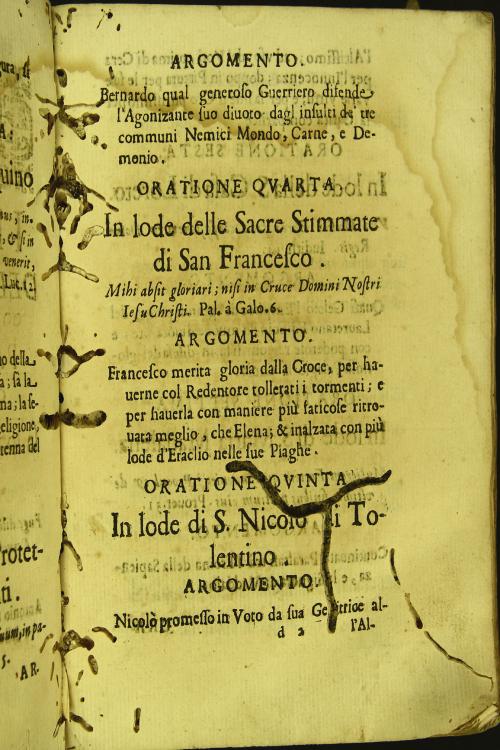 ura, se
A:
uino
bus, in-
, & si in
venerit,
Luc. 12.
no della
a; fà la
ma; la se-
eligione,
tenna del
rotet-
ti.
uum, in pa-
S.
AR-
ARGOMENTO.
Bernardo qual generoso Guerriero difende
l'Agonizante suo diuoto dagl'insulti de tre
communi Nemici Mondo, Carne, e De-
monio.
ORATIONE QVARTA
In lode delle Sacre Stimmate
di San Francesco.
Mihi absit gloriari; nisi in Cruce Domini Nostri
Iesu Christi. Pal. à Galo. 6.
ARGOMENTO.
Francesco merita gloria dalla Croce, per ha-
uerne col Redentore tollerati i tormenti; e
per hauerla con maniere più faticose ritro-
uata meglio, che Elena; & inalzata con più
lode d'Eraclio nelle sue Piaghe.
ORATIONE QVINTA
In lode di S. Nicolo di To-
lentino.
ARGOMENTO.
Nicolò promesso in Voto da sua Genitrice al-
d 2 l'Al-